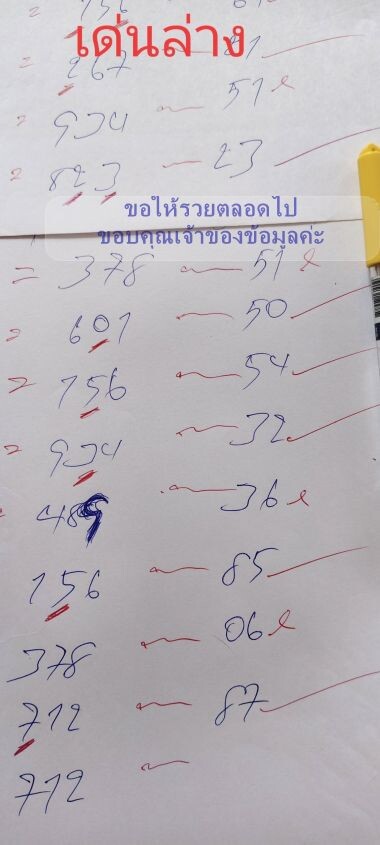 = 156
เด่นล่าง
= 267 — 21
= 934 — 51 x
= 823 — 23
ขอให้รวยตลอดไป
ขอบคุณเจ้าของข้อมูลค่ะ
= 378 — 51 x
= 601 — 50
= 156 — 54
= 934 — 32
489 — 36 x
156 — 85
378 — 06 x
712 — 87
712 —